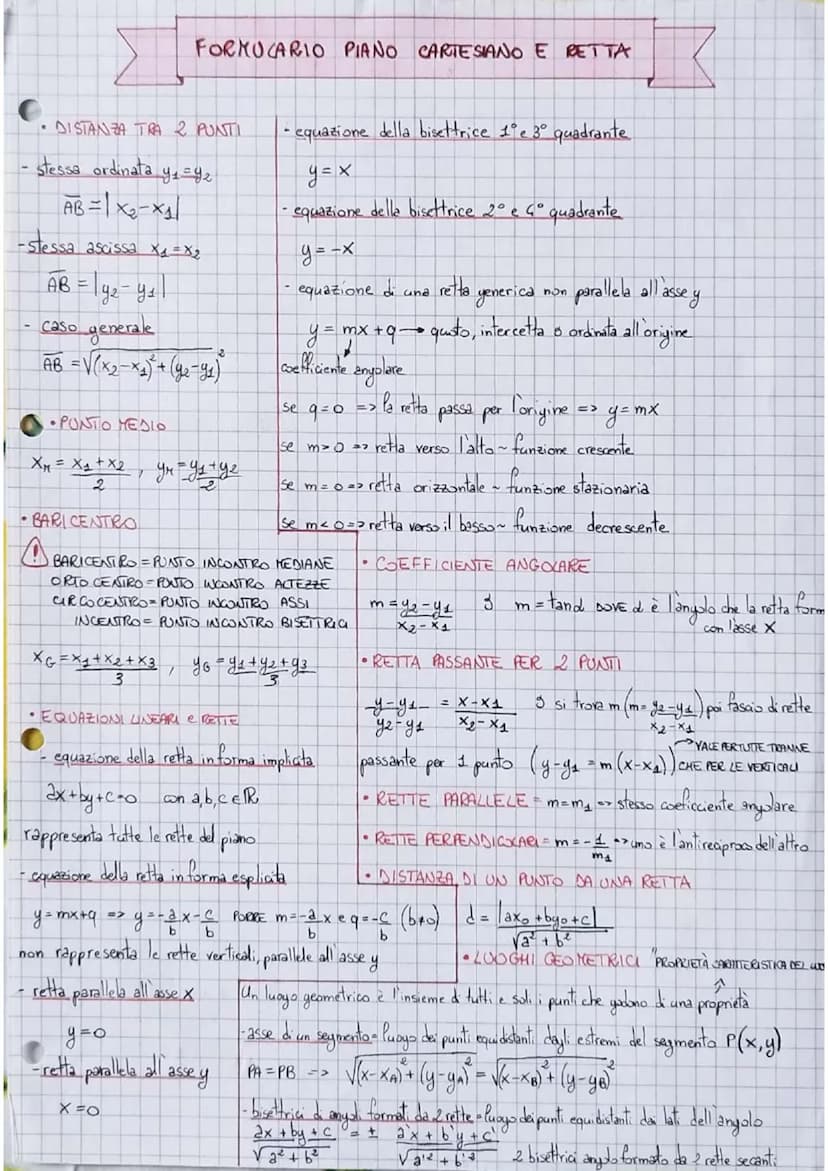 FORMULARIO PIANO CARTESIANO E RETTA
• DISTANZA TRA 2 PUNTI
- stessa ordinata y₁=y₂
AB = |x₂-x₁|
- stessa ascissa x₁=x₂
AB = |y₂-y₁|
- caso generale
AB = √(x₂-x₁)²+(y₂-y₁)²
• PUNTO MEDIO
x_M = x₁+x₂/2 , y_M = y₁+y₂/2
• BARICENTRO
! BARICENTRO = PUNTO INCONTRO MEDIANE
ORTOCENTRO = PUNTO INCONTRO ALTEZZE
CIRCOCENTRO = PUNTO INCONTRO ASSI
INCENTRO = PUNTO INCONTRO BISETTRICI
x_G = x₁+x₂+x₃/3 , y_G = y₁+y₂+y₃/3
• EQUAZIONI LINEARI e RETTE
- equazione della retta in forma implicita
ax+by+c=0 con a,b,c ∈ R
rappresenta tutte le rette del piano
- equazione della retta in forma esplicita
y=mx+q => y=-a/b x-c/b PORRE m=-a/b x e q=-c/b (b≠0)
non rappresenta le rette verticali, parallele all'asse y
- retta parallela all'asse x
y=0
- retta parallela all'asse y
x=0
- equazione della bisettrice 1° e 3° quadrante
y = x
- equazione della bisettrice 2° e 4° quadrante
y = -x
- equazione di una retta generica non parallela all'asse y
y = mx+q → quoto, intercetta o ordinata all'origine
coefficiente angolare
se q=0 => la retta passa per l'origine => y=mx
se m>0 => retta verso l'alto ~ funzione crescente
se m=0 => retta orizzontale ~ funzione stazionaria
se m<0 => retta verso il basso ~ funzione decrescente
• COEFFICIENTE ANGOLARE
m = y₂-y₁/x₂-x₁ m = tanα DOVE α è l'angolo che la retta form
con l'asse x
• RETTA PASSANTE PER 2 PUNTI
y-y₁/y₂-y₁ = x-x₁/x₂-x₁ si trova m (m=y₂-y₁/x₂-x₁) poi fascio di rette
passante per 1 punto (y-y₁=m(x-x₁)) → VALE PER TUTTE TRANNE
CHE PER LE VERTICALI
• RETTE PARALLELE = m=m₁ => stesso coefficiente angolare
• RETTE PERPENDICOLARI = m=-1/m₁ => uno è l'antireciproco dell'altro
• DISTANZA DI UN PUNTO DA UNA RETTA
d = |ax₀+by₀+c|/√a²+b²
• LUOGHI GEOMETRICI "PROPRIETÀ CARATTERISTICA DEL
Un luogo geometrico è l'insieme di tutti e soli i punti che godono di una proprietà
- asse di un segmento = luogo dei punti equidistanti dagli estremi del segmento P(x,y)
PA = PB -> √(x-x_A)²+(y-y_A)² = √(x-x_B)²+(y-y_B)²
- bisettrici di angoli formati da 2 rette = luogo dei punti equidistanti dai lati dell'angolo
ax+by+c/√a²+b² = ± a'x+b'y+c'/√a'²+b'² 2 bisettrici angolo formato da 2 rette secanti